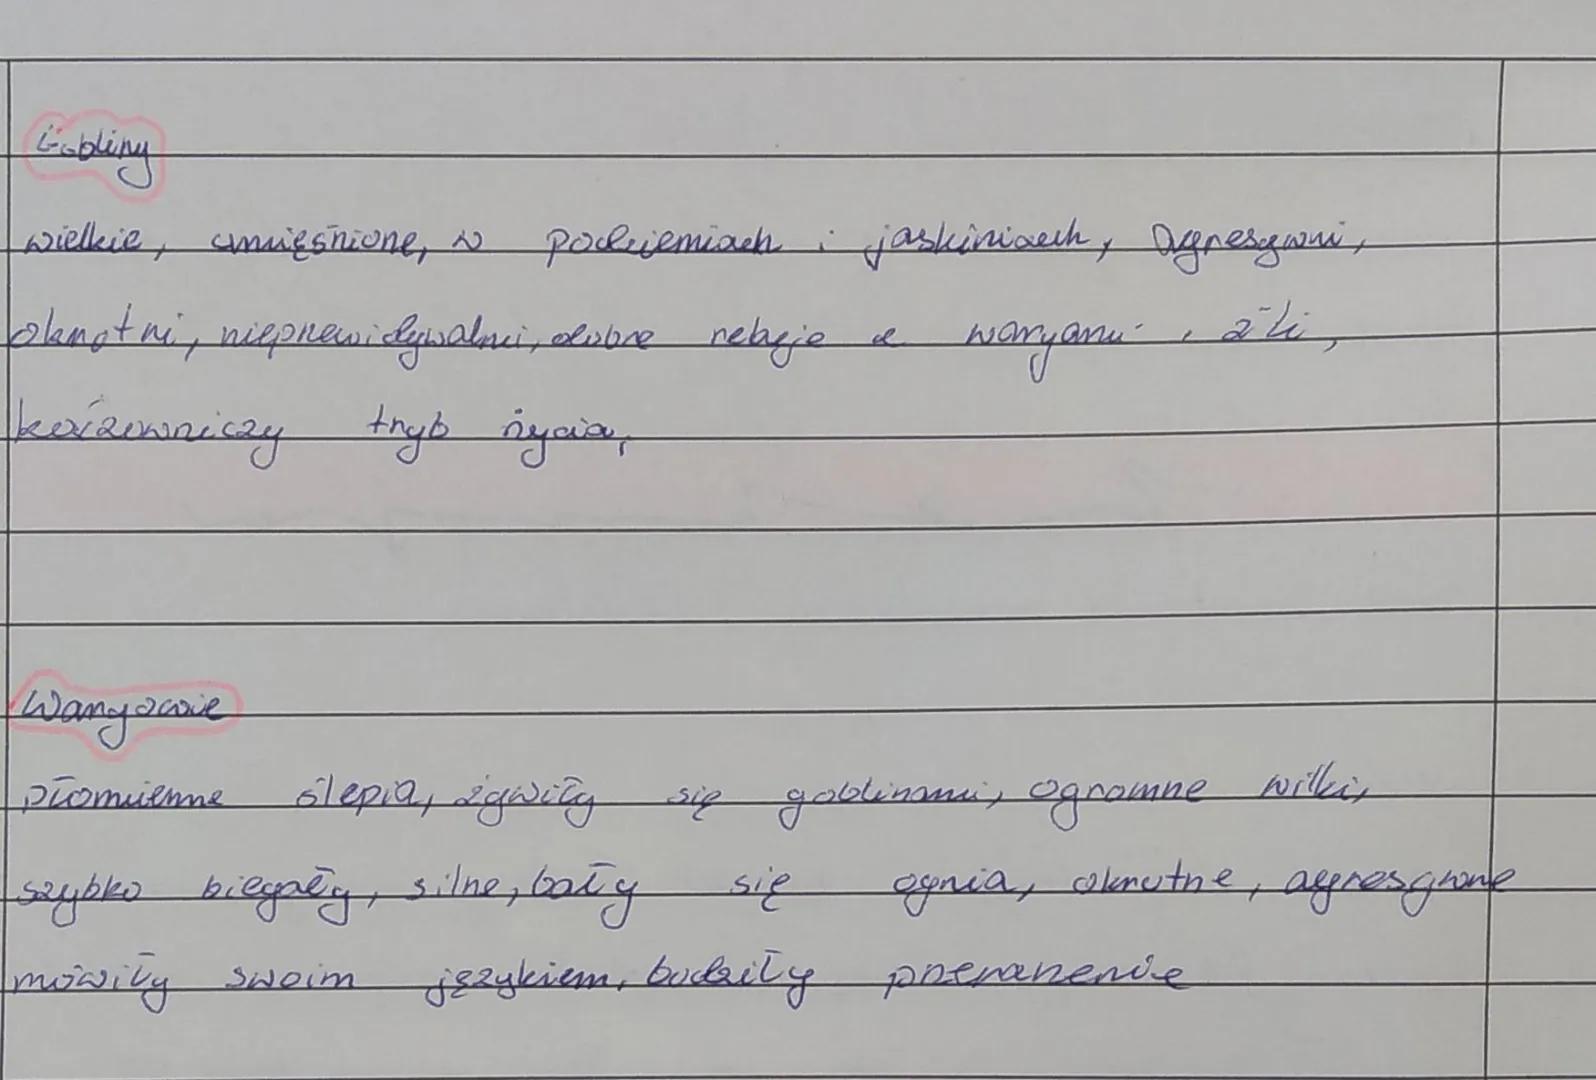 Gobliny
wielkie, umięśnione, w podziemiach i jaskiniach, agresywni,
okrutni, nieprzewidywalni, dobre relacje z wargami, źli,
koczowniczy tryb życia,
Wargowie
płomienne ślepia, żywiły się goblinami, ogromne wilki,
szybko biegały, silne, bały się ognia, okrutne, agresywne
mówiły swoim językiem, budziły przerażenie